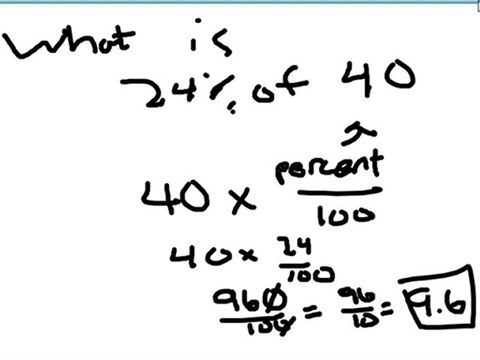 What is
24% of 40
40 x percent/100
40 x 24/100
960/100 = 96/10 = 9.6